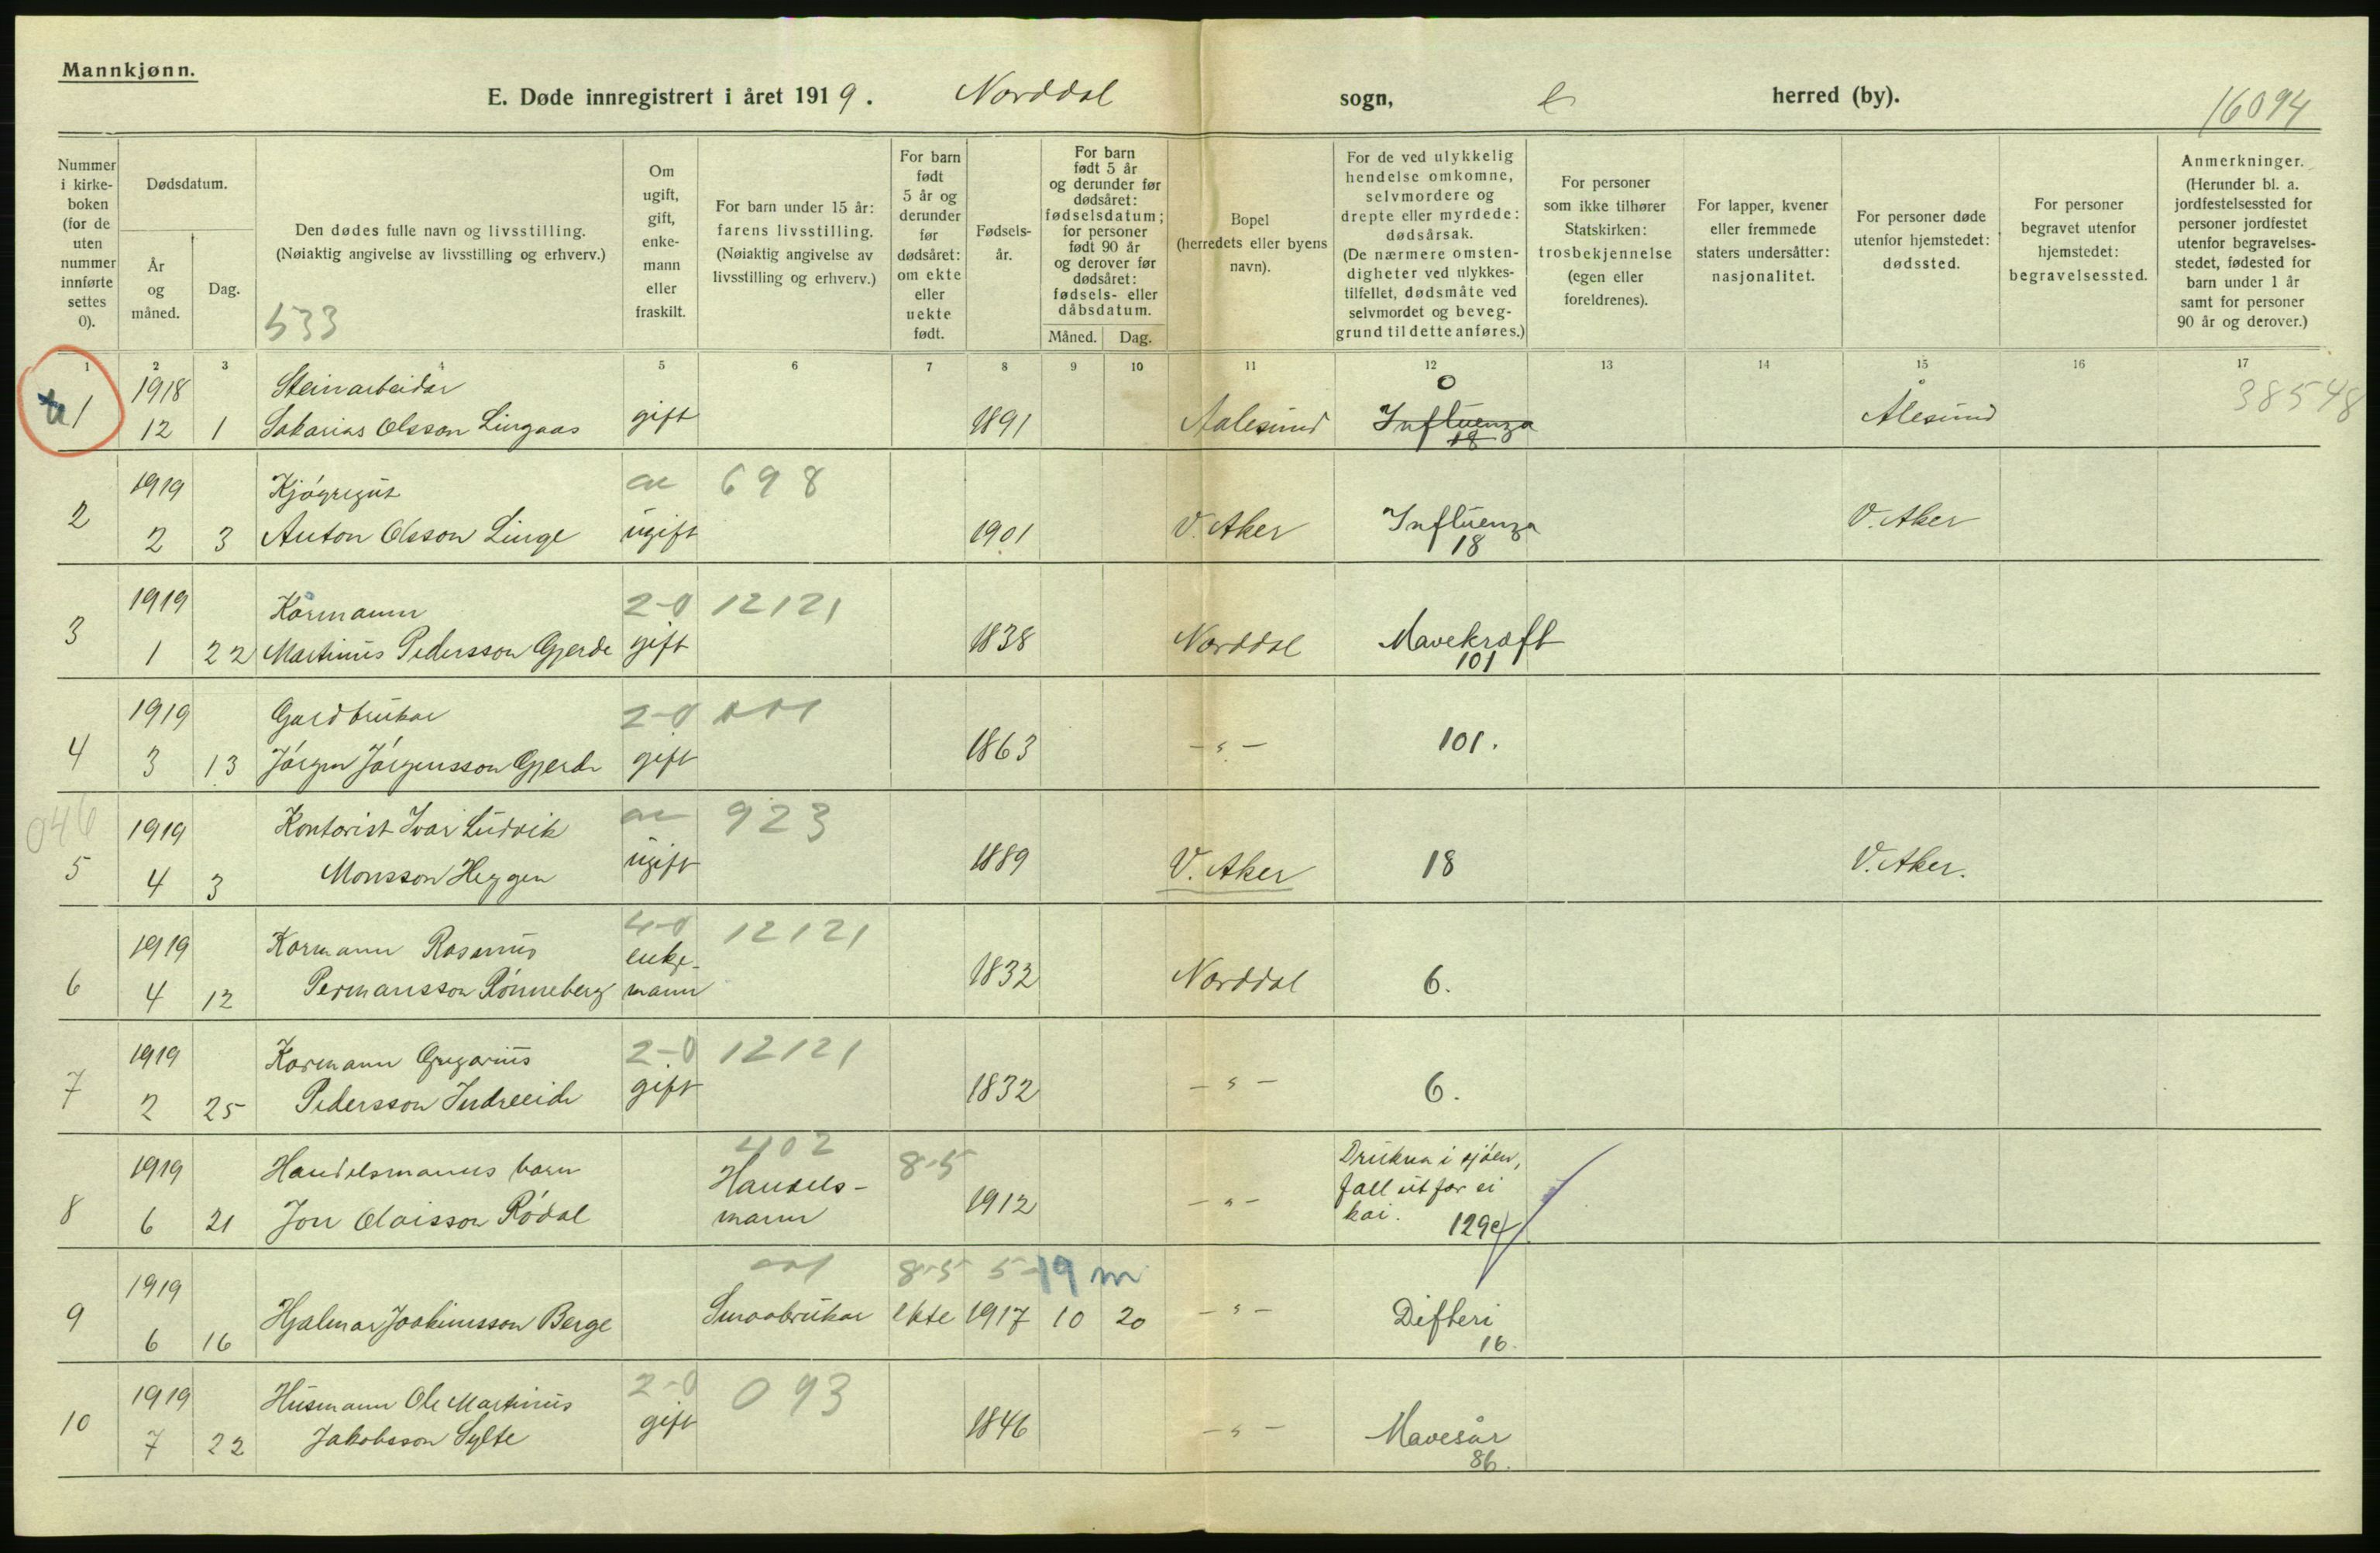 Mannkjønn.
E. Døde innregistrert i året 1919. Norddal sogn, herred (by).
16094
Nummer i kirkeboken (for de uten nummer innførte settes 0).
Dødsdatum.
År og måned.
Dag.
Den dødes fulle navn og livsstilling.
(Nøiaktig angivelse av livsstilling og erhverv.)
533
Om ugift, gift, enkemann eller fraskilt.
For barn under 15 år: farens livsstilling.
(Nøiaktig angivelse av livsstilling og erhverv.)
For barn født 5 år og derunder før dødsåret: om ekte eller uekte født.
Fødselsår.
For barn født 5 år og derunder før dødsåret: fødselsdatum; for personer født 90 år og derover før dødsåret: fødsels- eller dåbsdatum.
Måned. Dag.
Bopel (herredets eller byens navn).
For de ved ulykkelig hendelse omkomne, selvmordere og drepte eller myrdede: dødsårsak.
(De nærmere omstendigheter ved ulykkestilfellet, dødsmåte ved selvmordet og beveggrund til dette anføres.)
For personer som ikke tilhører Statskirken: trosbekjennelse (egen eller foreldrenes).
For lapper, kvener eller fremmede staters undersåtter: nasjonalitet.
For personer døde utenfor hjemstedet: dødssted.
For personer begravet utenfor hjemstedet: begravelsessted.
Anmerkninger.
(Herunder bl. a. jordfestelsessted for personer jordfestet utenfor begravelsesstedet, fødested for barn under 1 år samt for personer 90 år og derover.)
1 2 3 4 5 6 7 8 9 10 11 12 13 14 15 16 17
1918 Steinarbeidar 0 38548
1 12 1 Sakarias Olsson Lingaas gift 1891 Aalesund Influenza Ålesund
18
1919 Kjøgregut 698
2 2 3 Anton Olsson Linge ugift 1901 V. Aker Influenza V. Aker
18
1919 Kårmann 2-0 12121
3 1 22 Martinus Pedersson Gjerde gift 1838 Norddal Mavekræft
101
1919 Gardbrukar 2-0 001
4 3 13 Jórgen Jórgensson Gjerde gift 1863 - " - 101.
046
1919 Kontorist Ivar Ludvik 923
5 4 3 Monsson Heggen ugift 1889 V. Aker 18 V. Aker.
1919 Karmann Rasmus 4-0 12121
6 4 12 Permansson Rónneberg enkemann 1832 Norddal 6.
1919 Karmann Gregarius 2-0 12121
7 2 25 Pedersson Indreeide gift 1832 - " - 6.
402 8-5
1919 Handelsmanns barn
8 6 21 Jon Olaisson Ródal Handelsmann 1912 - " - Drukna i sjóen,
fall ut for ei
kai. 129e
001 8-5 5-19 m
1919
9 6 16 Hjalmar Joakimsson Berge Smaabrukar ekte 1917 10 20 - " - Difteri
16.
1919 Husmann Ole Martinus 2-0 093
10 7 22 Jakobsson Sylte gift 1846 - " - Mavesår
86.